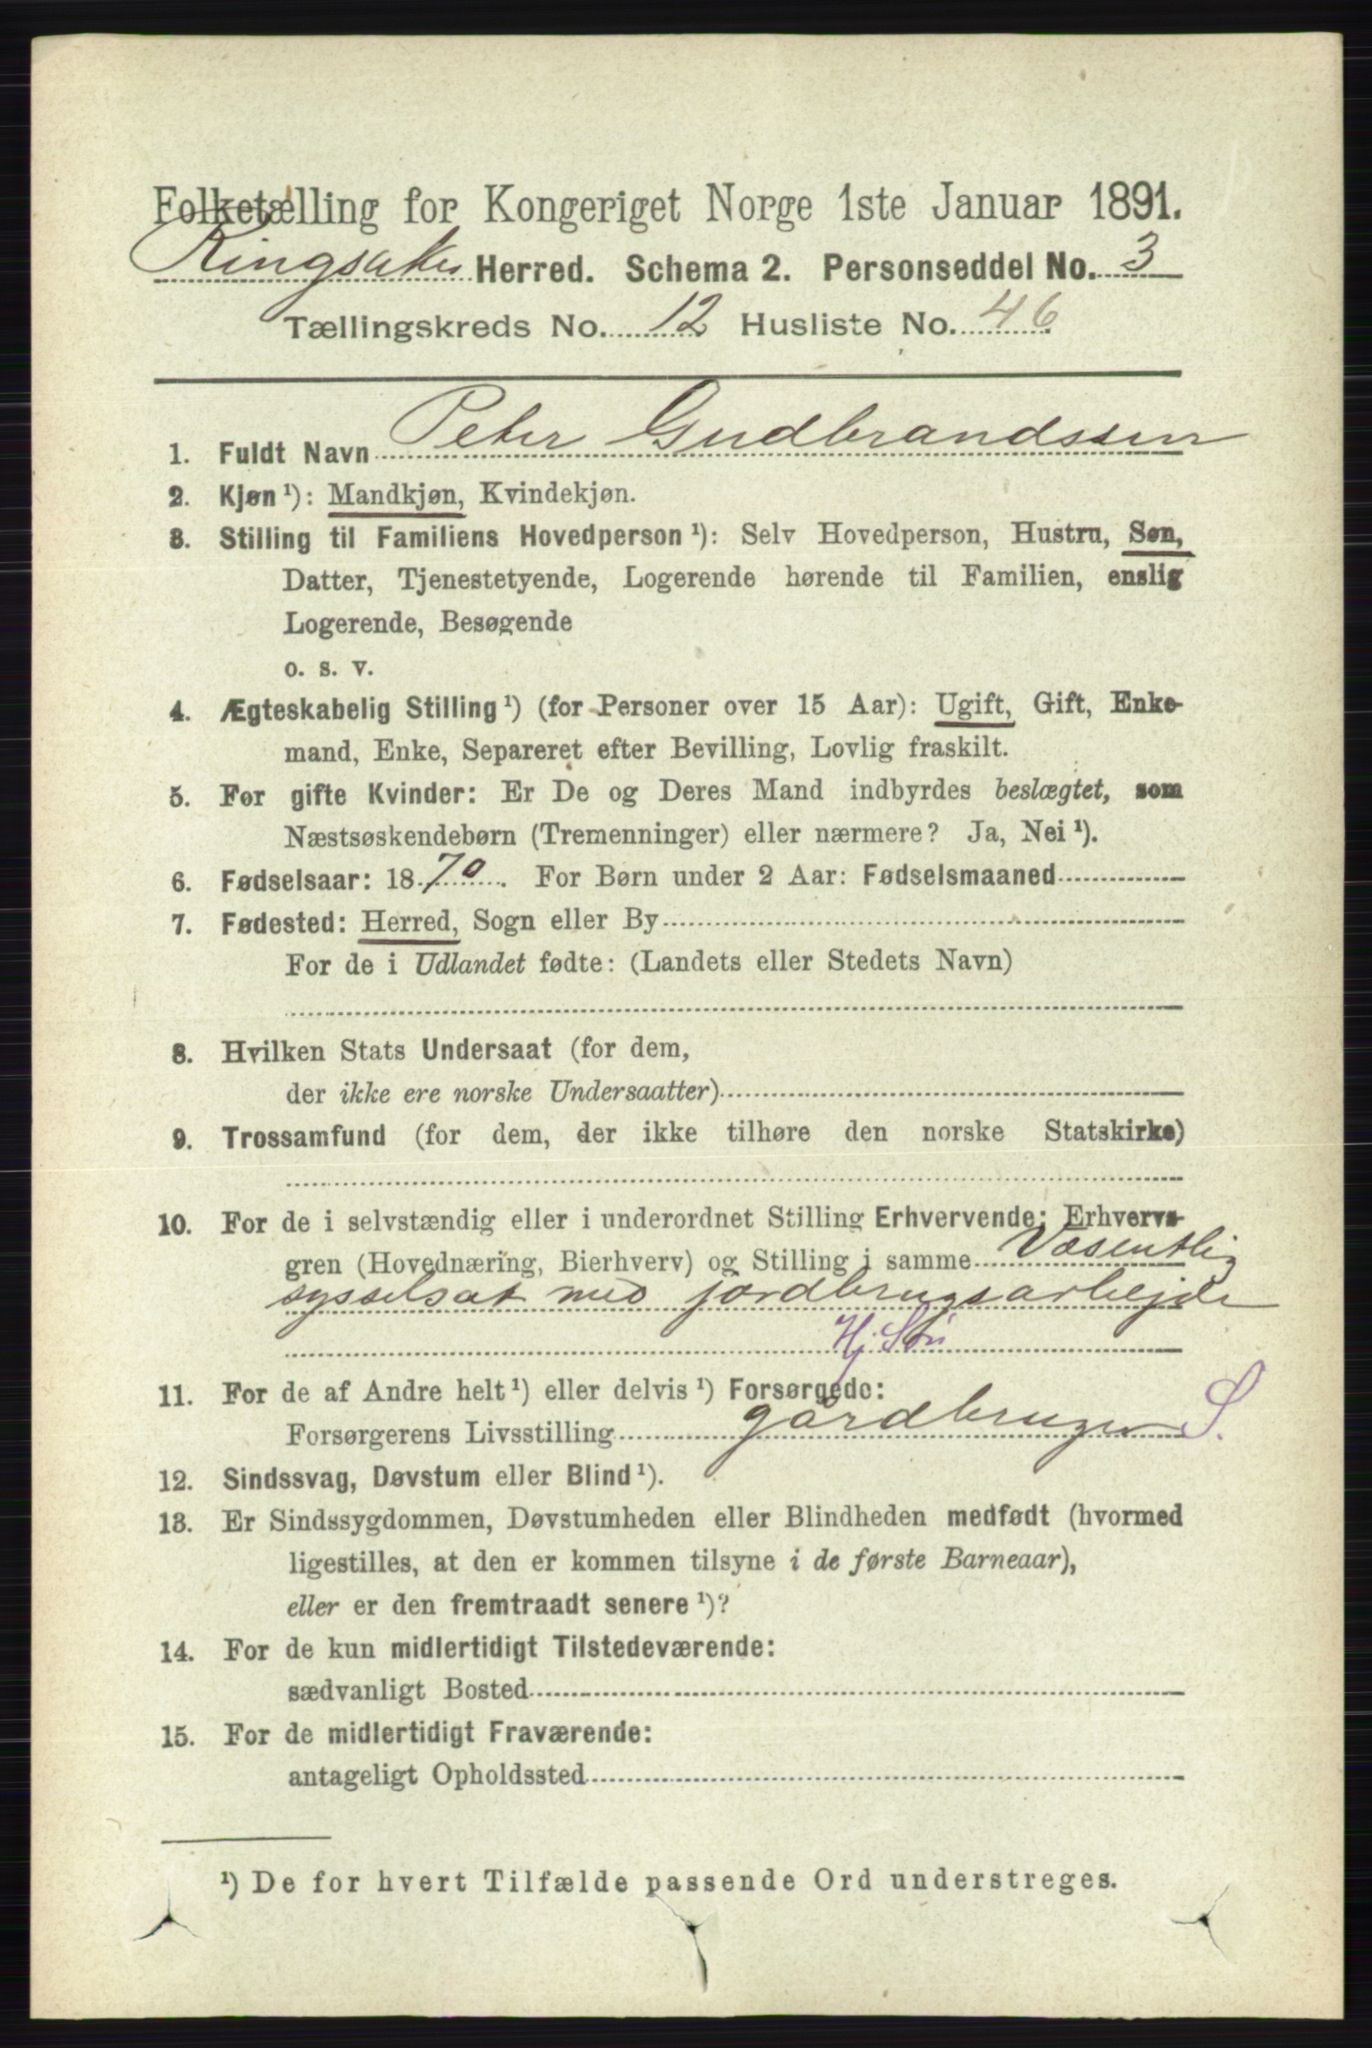 Folketælling for Kongeriget Norge 1ste Januar 1891.
Ringsaker Herred. Schema 2. Personseddel No. 3
Tællingskreds No. 12 Husliste No. 46
1. Fuldt Navn Peter Gudbrandssen
2. Kjøn¹): Mandkjøn, Kvindekjøn.
3. Stilling til Familiens Hovedperson¹): Selv Hovedperson, Hustru, Søn,
Datter, Tjenestetyende, Logerende hørende til Familien, enslig
Logerende, Besøgende
o. s. v.
4. Ægteskabelig Stilling¹) (for Personer over 15 Aar): Ugift, Gift, Enke-
mand, Enke, Separeret efter Bevilling, Lovlig fraskilt.
5. For gifte Kvinder: Er De og Deres Mand indbyrdes beslægtet, som
Næstsøskendebørn (Tremenninger) eller nærmere? Ja, Nei¹).
6. Fødselsaar: 1870. For Børn under 2 Aar: Fødselsmaaned
7. Fødested: Herred, Sogn eller By
For de i Udlandet fødte: (Landets eller Stedets Navn)
8. Hvilken Stats Undersaat (for dem,
der ikke ere norske Undersaatter)
9. Trossamfund (for dem, der ikke tilhøre den norske Statskirke)
10. For de i selvstændig eller i underordnet Stilling Erhvervende: Erhvervs-
gren (Hovednæring, Bierhverv) og Stilling i samme Væsentlig
sysselsat med jordbrugsarbejde
Hj. Søn
11. For de af Andre helt¹) eller delvis¹) Forsørgede:
Forsørgerens Livsstilling gårdbruger S.
12. Sindssvag, Døvstum eller Blind¹).
13. Er Sindssygdommen, Døvstumheden eller Blindheden medfødt (hvormed
ligestilles, at den er kommen tilsyne i de første Barneaar),
eller er den fremtraadt senere¹)?
14. For de kun midlertidigt Tilstedeværende:
sædvanligt Bosted
15. For de midlertidigt Fraværende:
antageligt Opholdssted
¹) De for hvert Tilfælde passende Ord understreges.